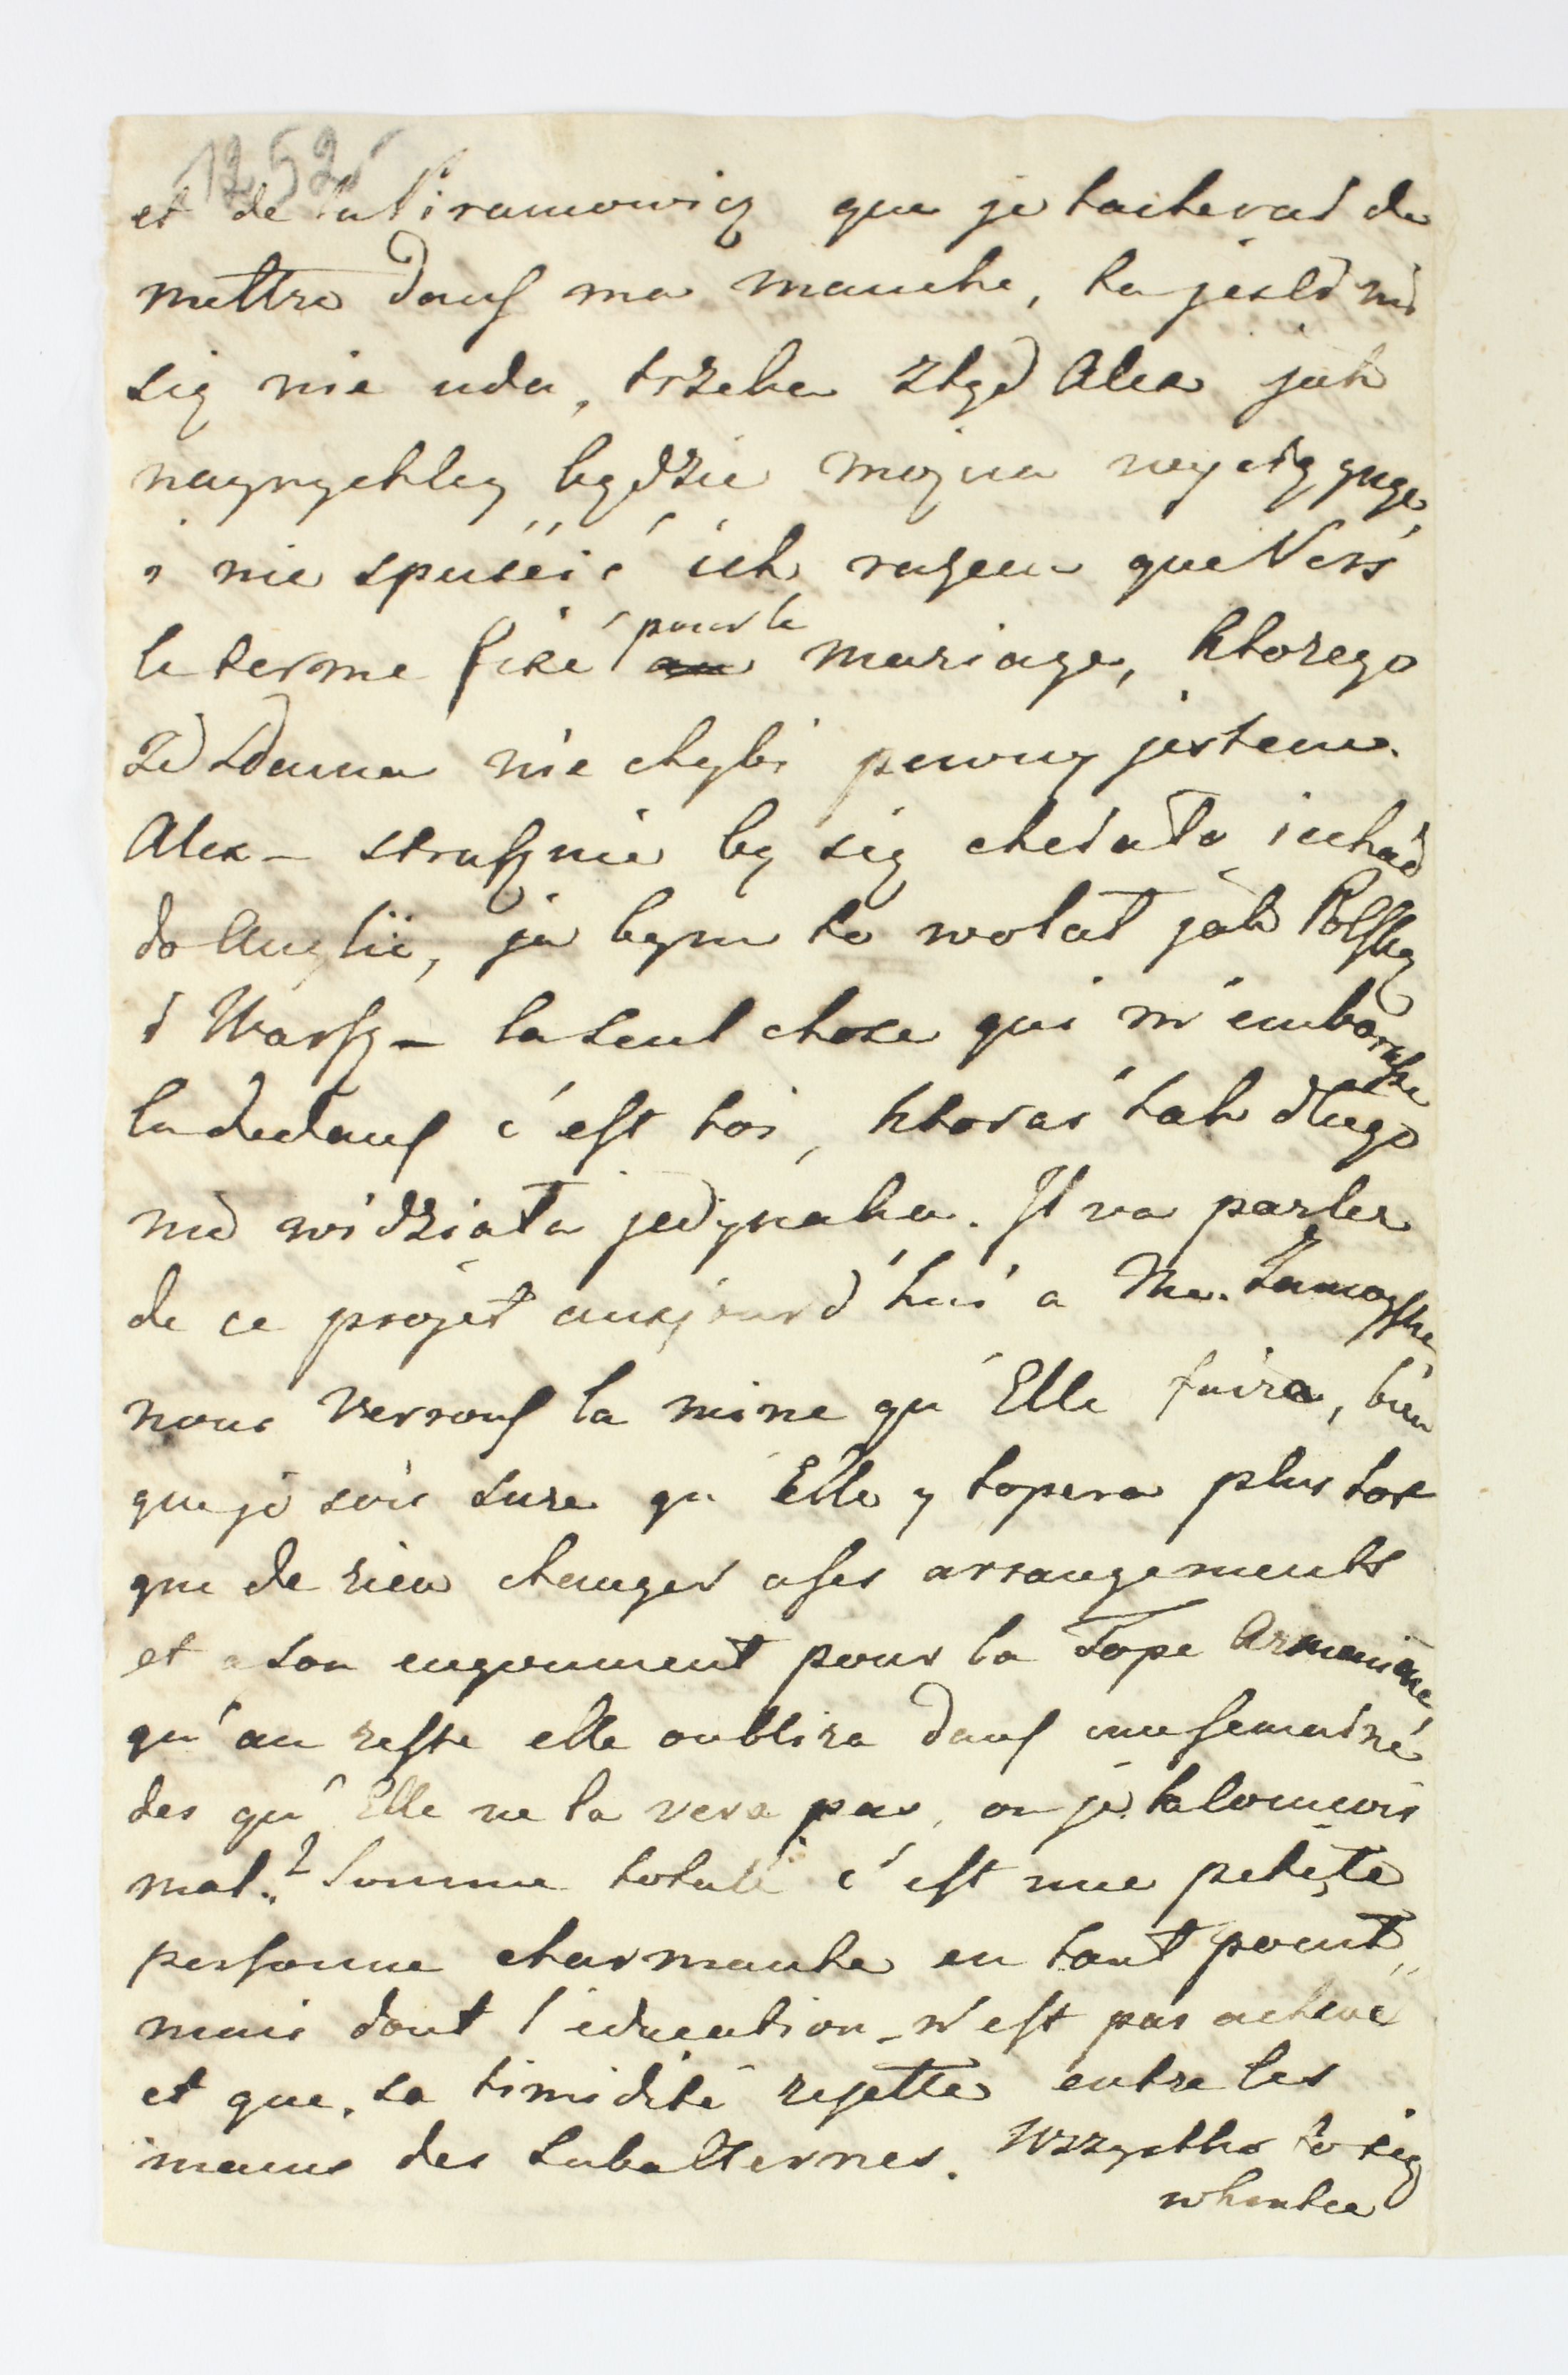 1252
et de la Piramowicz que je tacherai de
mettre dans ma manche, ta jesli ni
się nie uda, trzeba ztąd Alex jak
nayrychley będzie mozna wyciągnąć
i nie spuścić ich razem que vers
le terme fixé pour le mariage, ktorego
że Adama nie chybi pewny jestem.
Alex – strasznie by się chciało iechać
do Anglii, ja bym to wolał jak Polskę
i Warsz – la seul chose qui m'embarasse
la dedans c'est toi, ktoraś tak długo
nie widziała jedynaka. Il va parler
de ce projet aujourd'hui a Me. Zamoyska,
nous verrons la mine qu'Elle faira, bien
que je sois sure qu'Elle y topera plus tot
que de rien changer a ses arrangements
et a son engouement pour la Tope Armeniane,
qu'au reste elle oublira dans une semaine
des qu'Elle ne la vera pas, ou je la connois
mal? Somme totale c'est une petite
personne charmante en tout point,
mais dont l'education n'est pas achevé
et que sa timidité rejette entre les
mains des subalternes. Wszystko to się
wkrotce